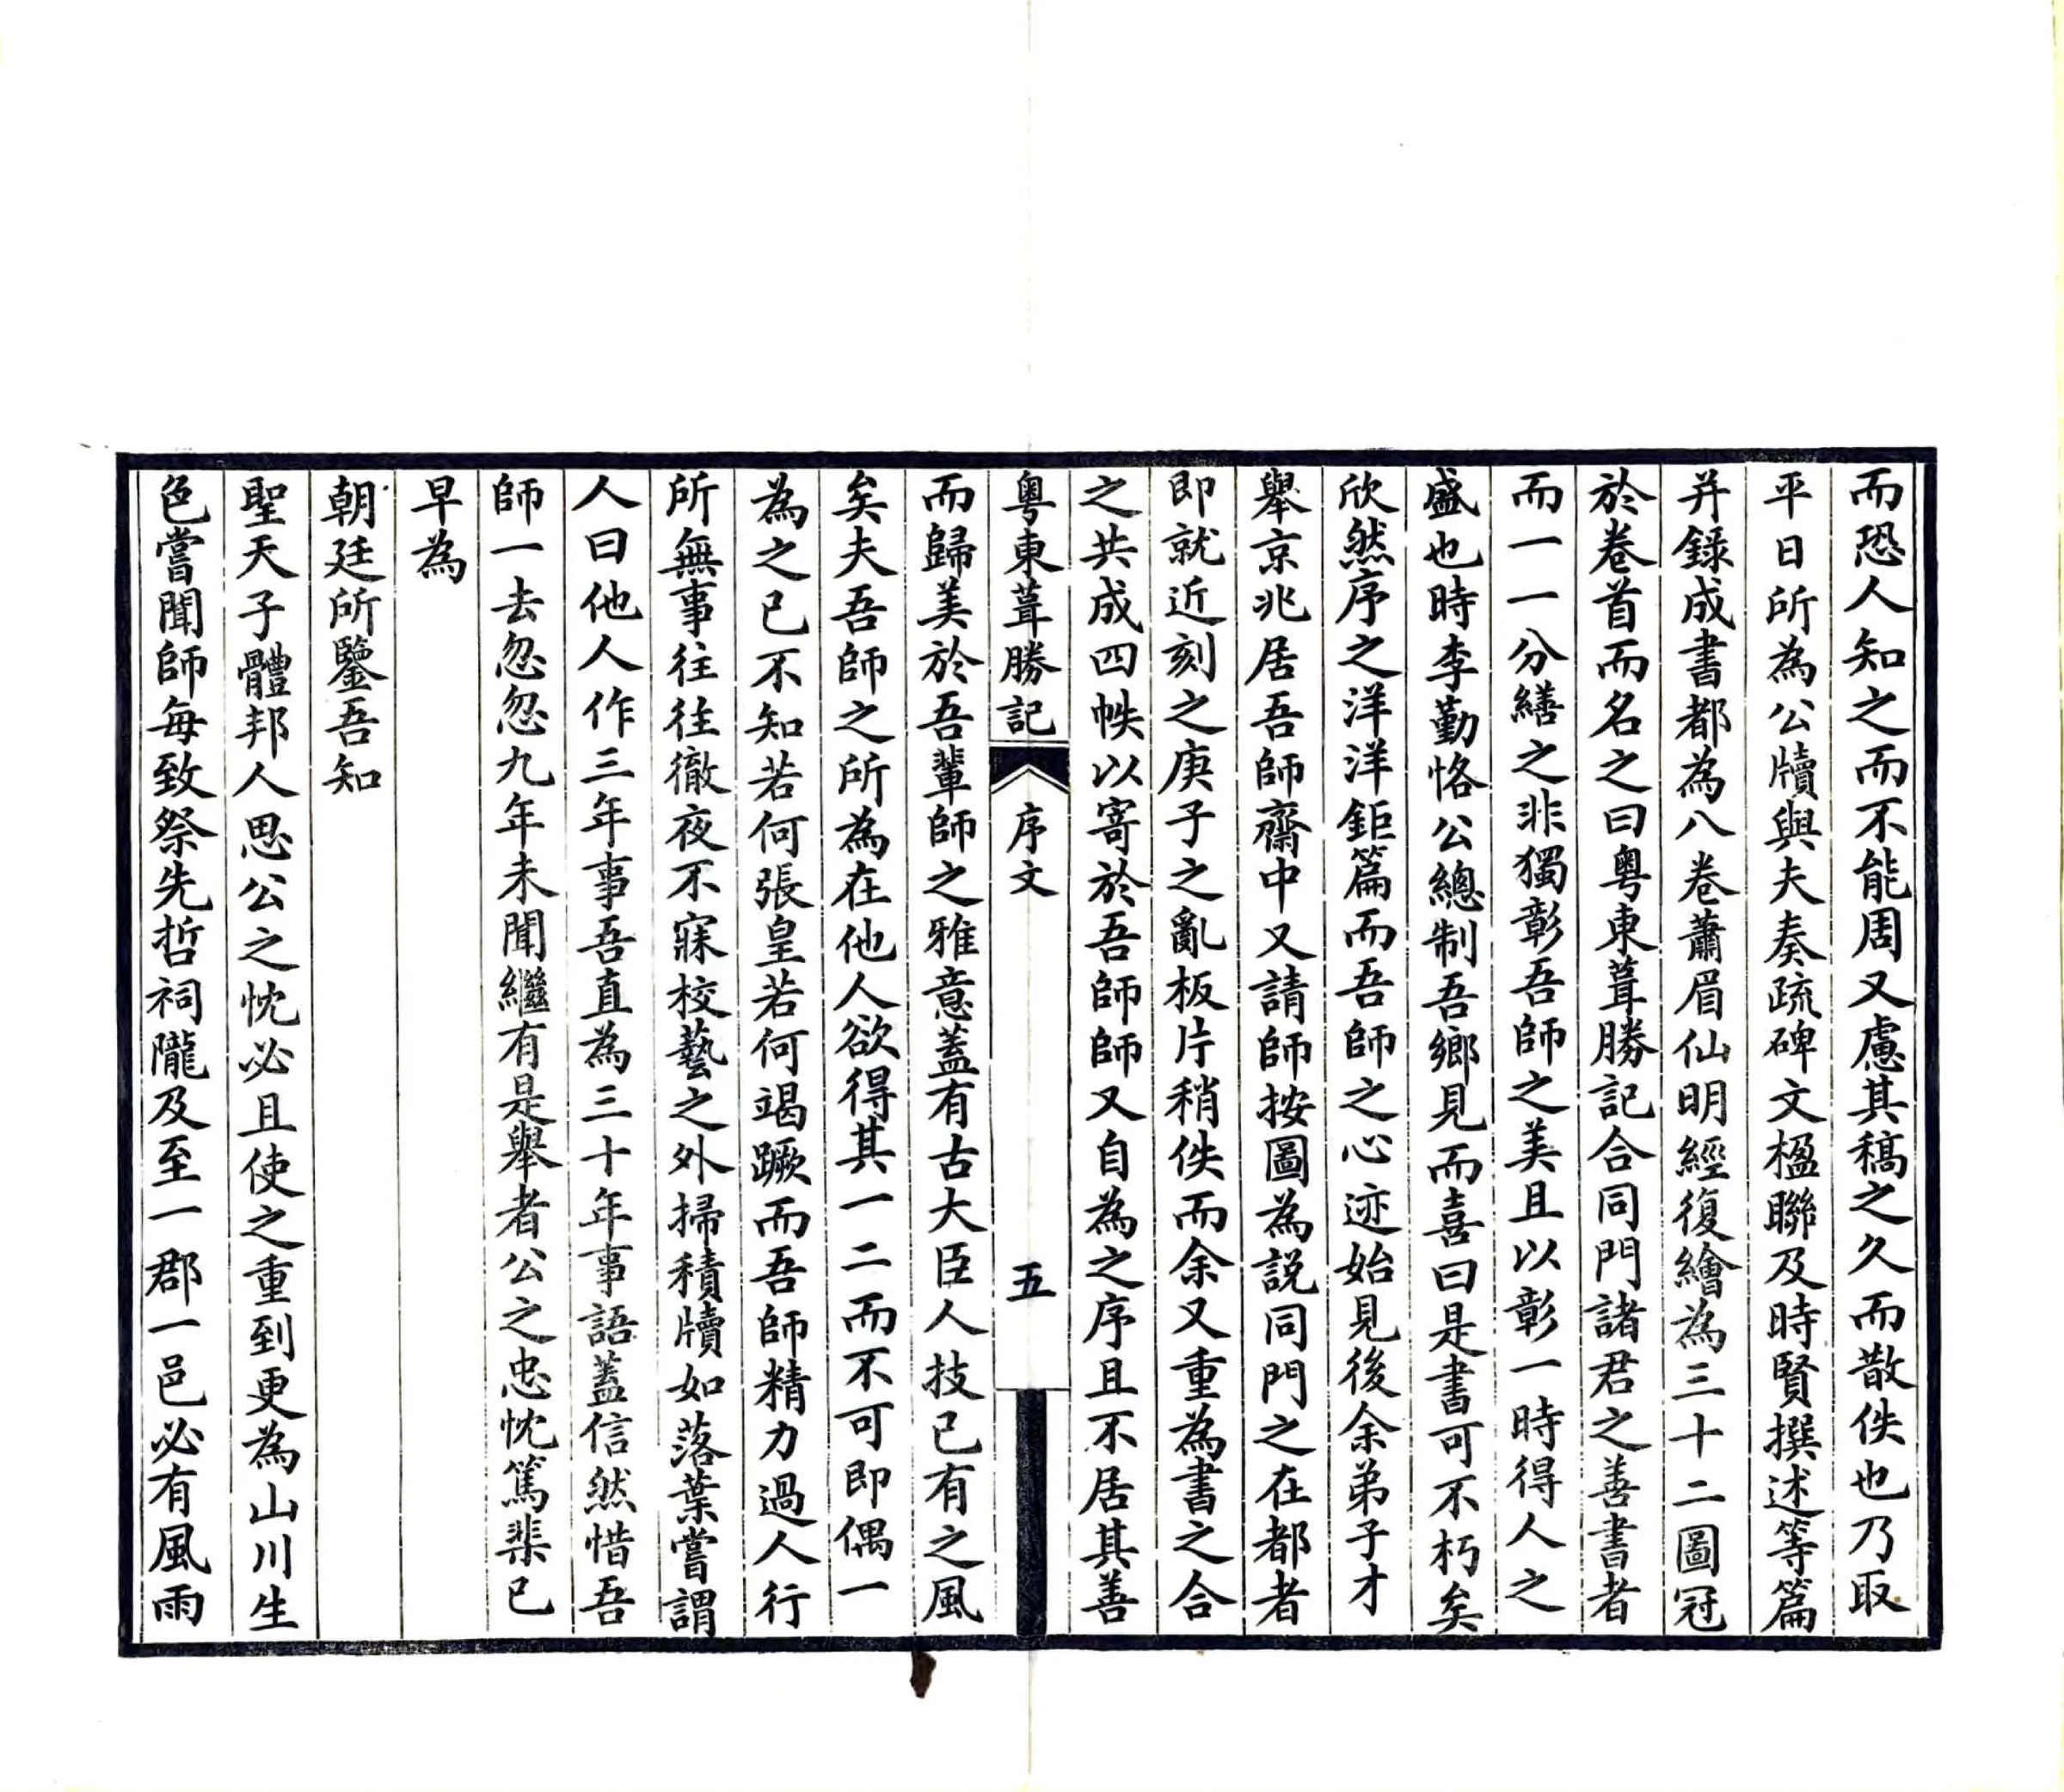 而恐人知之而不能周又慮其稿之久而散佚也乃取
平日所為公牘與夫奏疏碑文楹聯及時賢撰述等篇
并録成書都為八卷蕭眉仙明經復繪為三十二圖冠
於卷首而名之曰粤東葺勝記合同門諸君之善書者
而一一分繕之非獨彰吾師之美且以彰一時得人之
盛也時李勤恪公總制吾鄉見而喜曰是書可不朽矣
欣然序之洋洋鉅篇而吾師之心迹始見後余弟子才
舉京兆居吾師齋中又請師按圖為説同門之在都者
即就近刻之庚子之亂板片稍佚而余又重為書之合
之共成四帙以寄於吾師師又自為之序且不居其善
粤東葺勝記
序文
五
而歸美於吾輩師之雅意蓋有古大臣人技已有之風
矣夫吾師之所為在他人欲得其一二而不可即偶一
為之已不知若何張皇若何竭蹶而吾師精力過人行
所無事往往徹夜不寐校藝之外掃積牘如落葉嘗謂
人曰他人作三年事吾直為三十年事語蓋信然惜吾
師一去忽忽九年未聞繼有是舉者公之忠忱篤棐已
早為
朝廷所鑒吾知
聖天子體邦人思公之忱必且使之重到更為山川生
色嘗聞師每致祭先哲祠隴及至一郡一邑必有風雨